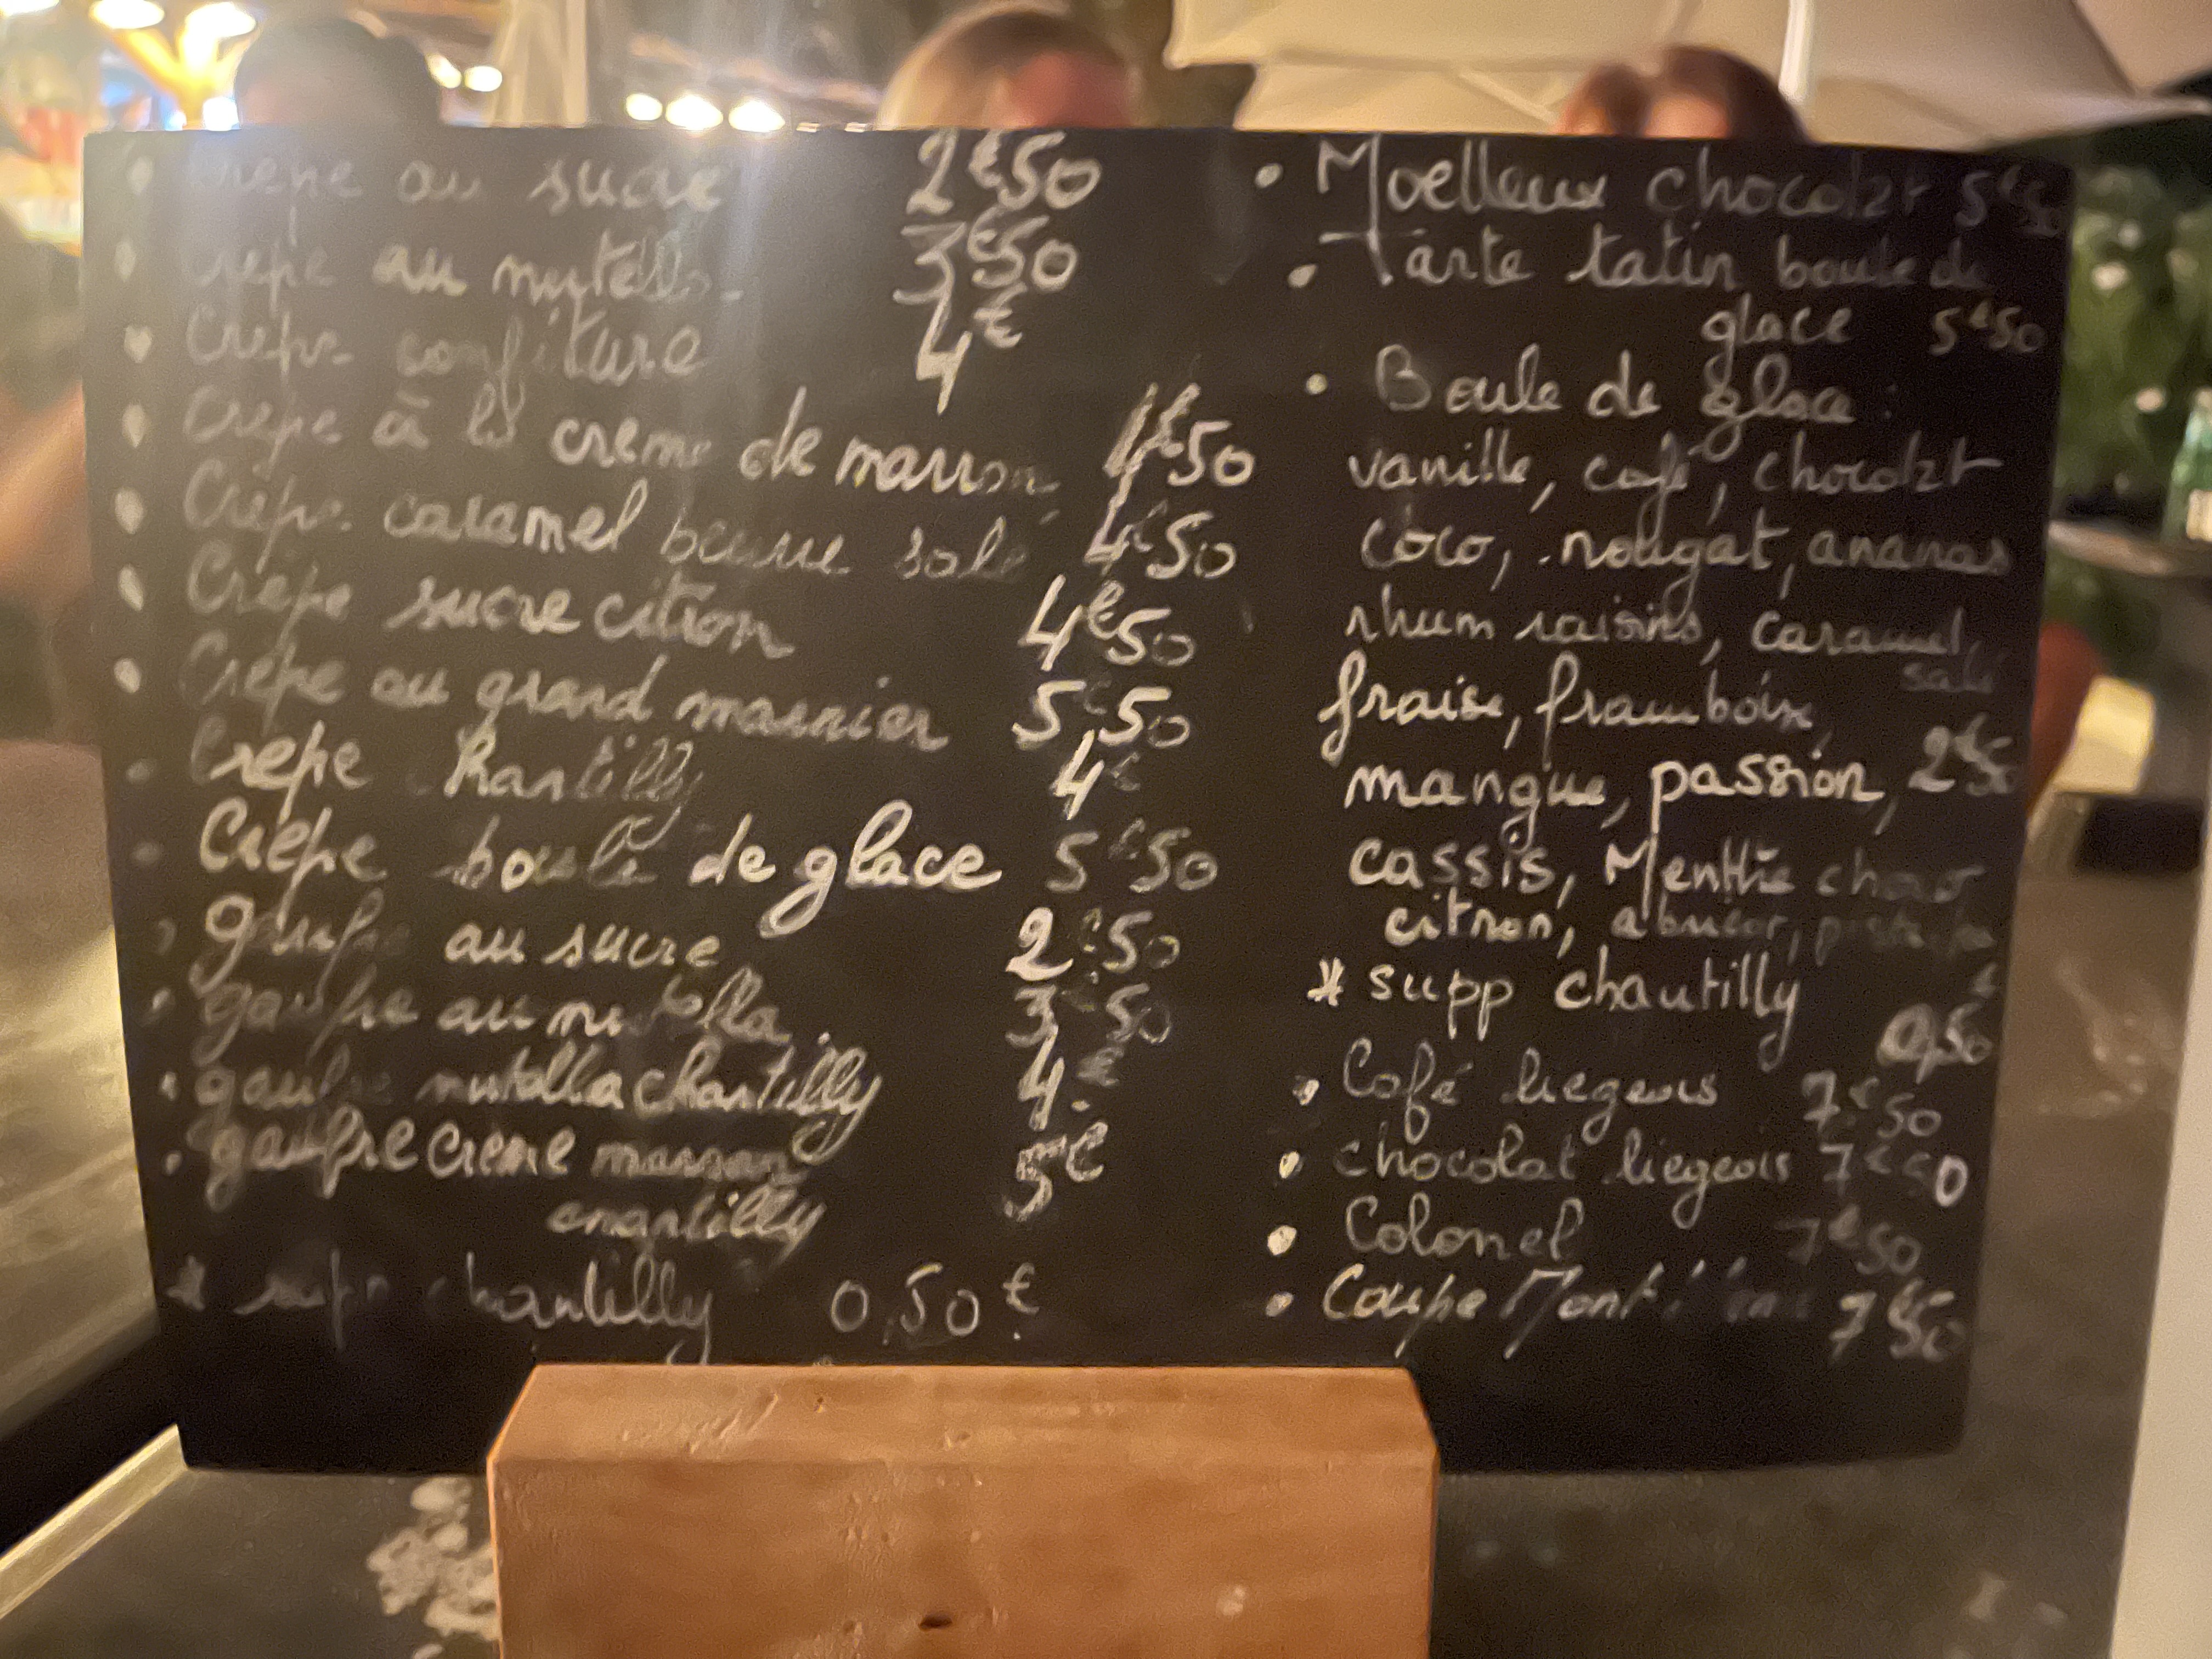 Crepe au sucre 2€50
Crepe au nutella 3€50
Crepe confiture 4€
Crepe à la creme de marron 4€50
Crepe caramel beurre salé 4€50
Crepe sucre citron 4€50
Crêpe au grand marnier 5€50
Crepe chantilly 4€
Crêpe boule de glace 5€50
gaufre au sucre 2€50
gaufre au nutella 3€50
gaufre nutella chantilly 4€
gaufre creme marron 5€
chantilly
* supp chantilly 0,50€
• Moelleux chocolat 5€50
• Tarte tatin boule de
glace 5€50
• Boule de glace :
vanille, café, chocolat
coco, nougat, ananas
rhum raisins, caramel,
salé
fraise, framboise,
mangue, passion, 2€50
cassis, Menthe choco
citron, abricot,
* supp chantilly
0,50€
• Café liegeois 7€50
• chocolat liegeois 7€50
• Colonel 7€50
• Coupe 7€50